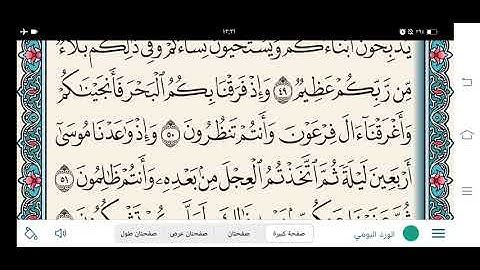 ١٢:٣١
٪٩٤
يُذَبِّحُونَ أَبْنَاءَكُمْ وَيَسْتَحْيُونَ نِسَاءَكُمْ وَفِي ذَٰلِكُم بَلَاءٌ
مِّن رَّبِّكُمْ عَظِيمٌ ٤٩ وَإِذْ فَرَقْنَا بِكُمُ الْبَحْرَ فَأَنجَيْنَاكُمْ
وَأَغْرَقْنَا آلَ فِرْعَوْنَ وَأَنتُمْ تَنظُرُونَ ٥٠ وَإِذْ وَاعَدْنَا مُوسَىٰ
أَرْبَعِينَ لَيْلَةً ثُمَّ اتَّخَذْتُمُ الْعِجْلَ مِن بَعْدِهِ وَأَنتُمْ ظَالِمُونَ ٥١
ثُمَّ عَفَوْنَا عَنكُم
الورد اليومي
صفحة كبيرة
صفحتان
صفحتان عرض
صفحتان طول